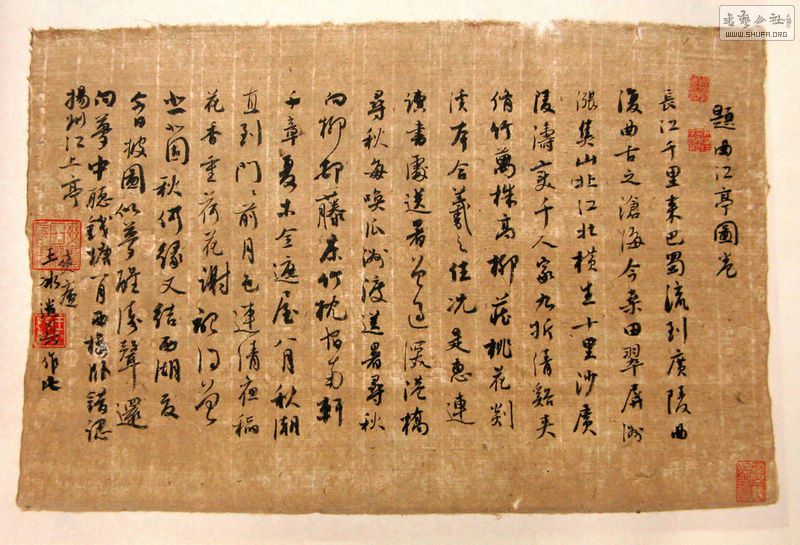 題曲江亭圖卷
長江千里來巴蜀流到廣陵曲
復曲古之滄海今桑田翠屏洲
漲焦山北江北橫生十里沙廣
陵濤變千人家九折清谿夾
脩竹萬株高柳藏桃花剡
溪本合羲之住況是惠連
讀書處送暑曾過港橋
尋秋每喚瓜洲渡送暑尋秋
向柳邨藤牀竹枕南軒
千章夏木全遮屋八月秋潮
直到門門前月色連清夜稻
花香重荷花謝
秋何緣又結西湖夏
今日披圖似夢醒濤聲還
向夢中聽錢塘一月西樓臥錯認
揚州江上亭
作此
書法公社
WWW.SHUFA.ORG